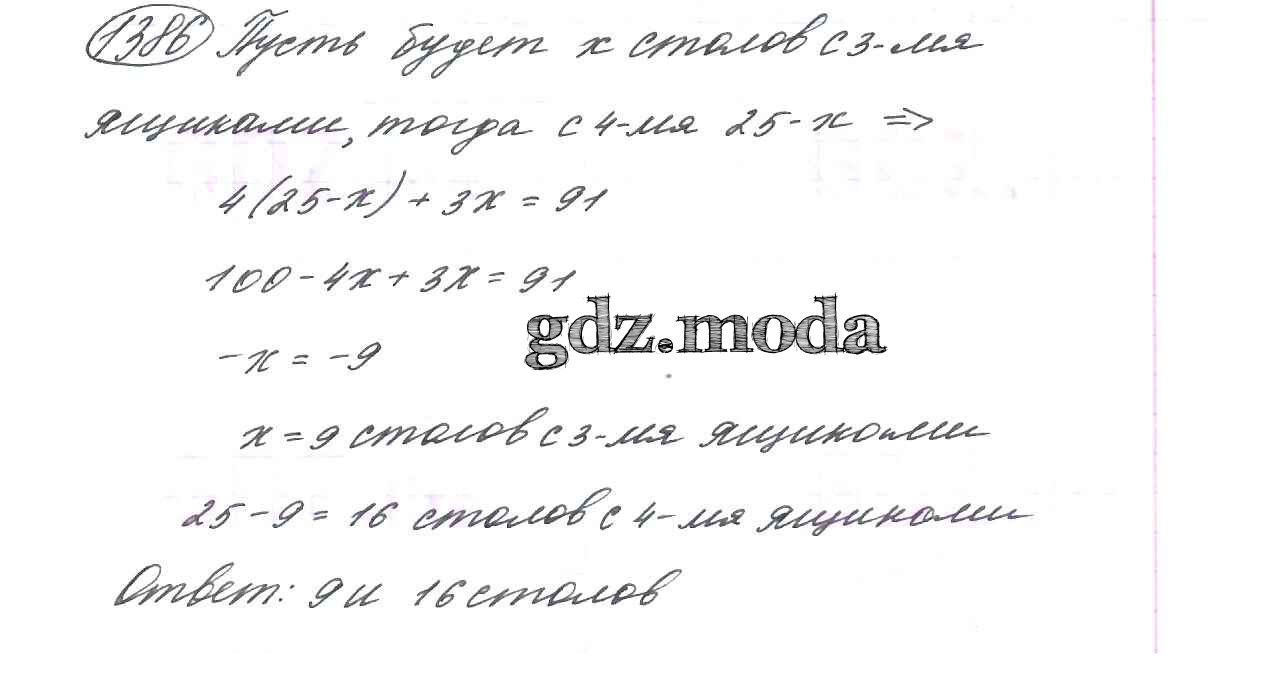 1386 Пусть будет x столов с 3-мя
ящиками, тогда с 4-мя 25-x =>
4(25-x) + 3x = 91
100 - 4x + 3x = 91
gdz.moda
-x = -9
x = 9 столов с 3-мя ящиками
25 - 9 = 16 столов с 4-мя ящиками
Ответ: 9 и 16 столов